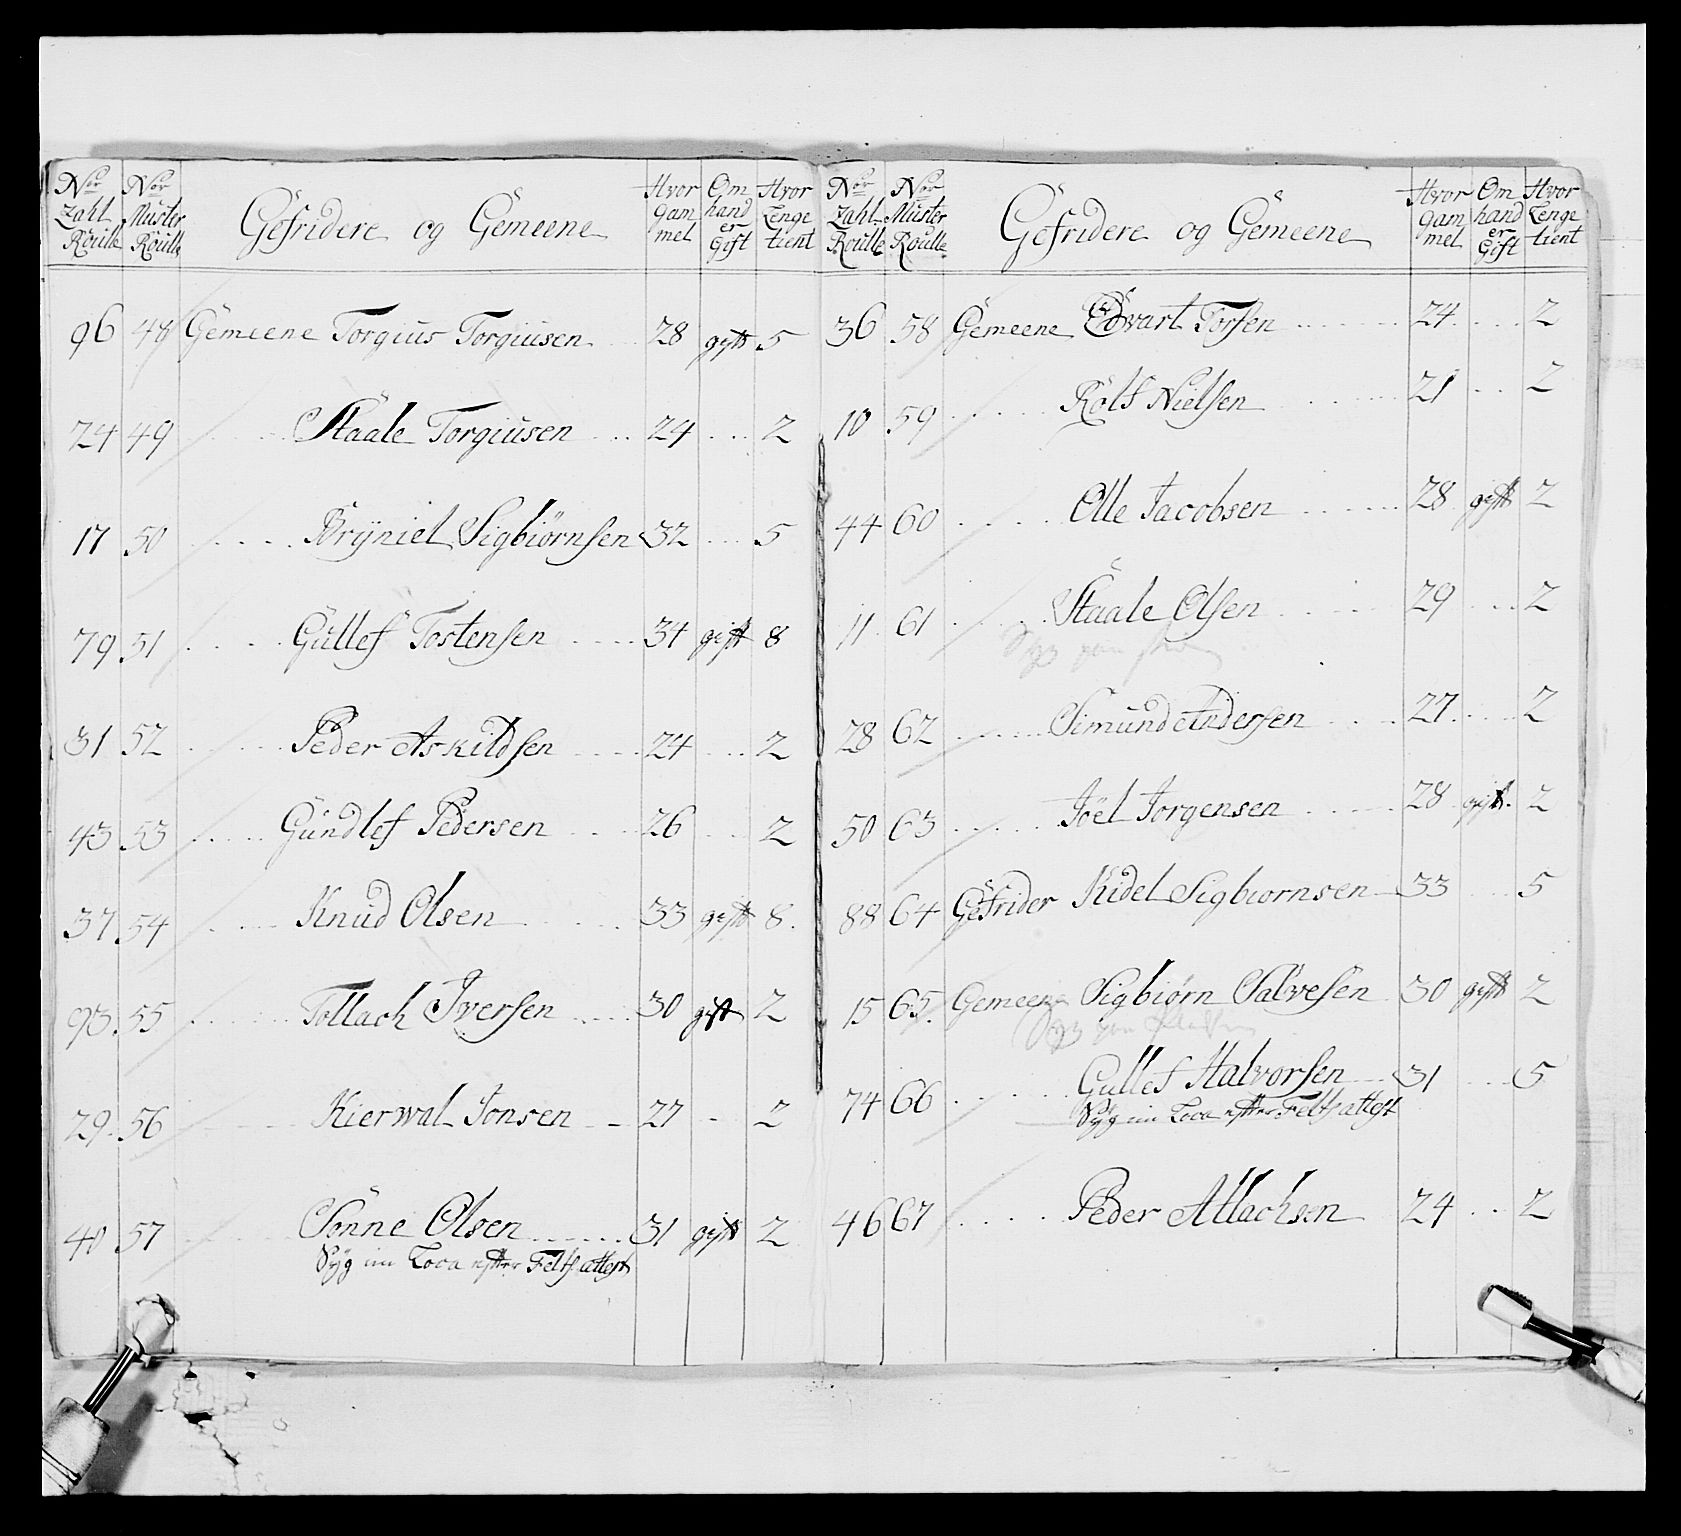 Nor Zahl Roulle | Nor Muster Roulle | Gefridere og Gemeene | Hvor gam mel | Om hand er Gift | Hvor Lenge tient
96 48 Gemeene Torgius Torgiusen 28 gift 5
24 49 Staale Torgiusen 24 2
17 50 Bryniel Sigbiørnsen 32 5
79 51 Gullef Tostensen 34 gift 8
31 52 Peder Askildsen 24 2
43 53 Gundlef Pedersen 26 2
37 54 Knud Olsen 33 gift 8
93 55 Tollach Iversen 30 gift 2
29 56 Kierwal Jonsen 27 2
40 57 Sønne Olsen 31 gift 2
Syg im Loca efter Feltsattest
Nor Zahl Roulle | Nor Muster Roulle | Gefridere og Gemeene | Hvor gam mel | Om hand er Gift | Hvor Lenge tient
36 58 Gemeene Edvart Torsen 24 2
10 59 Rolf Nielsen 21 2
44 60 Olle Jacobsen 28 gift 2
11 61 Staale Olsen 29 2
Syg paa
28 62 Simund Andersen 27 2
50 63 Joel Jorgensen 28 gift 2
88 64 Gefrider Kidel Sigbiornsen 33 5
15 65 Gemeene Sigbiørn Salvesen 30 gift 2
Syg paa
74 66 Gullef Halvorsen 31 5
Syg im Loca efter Feltsattest
46 67 Peder Atlachsen 24 2